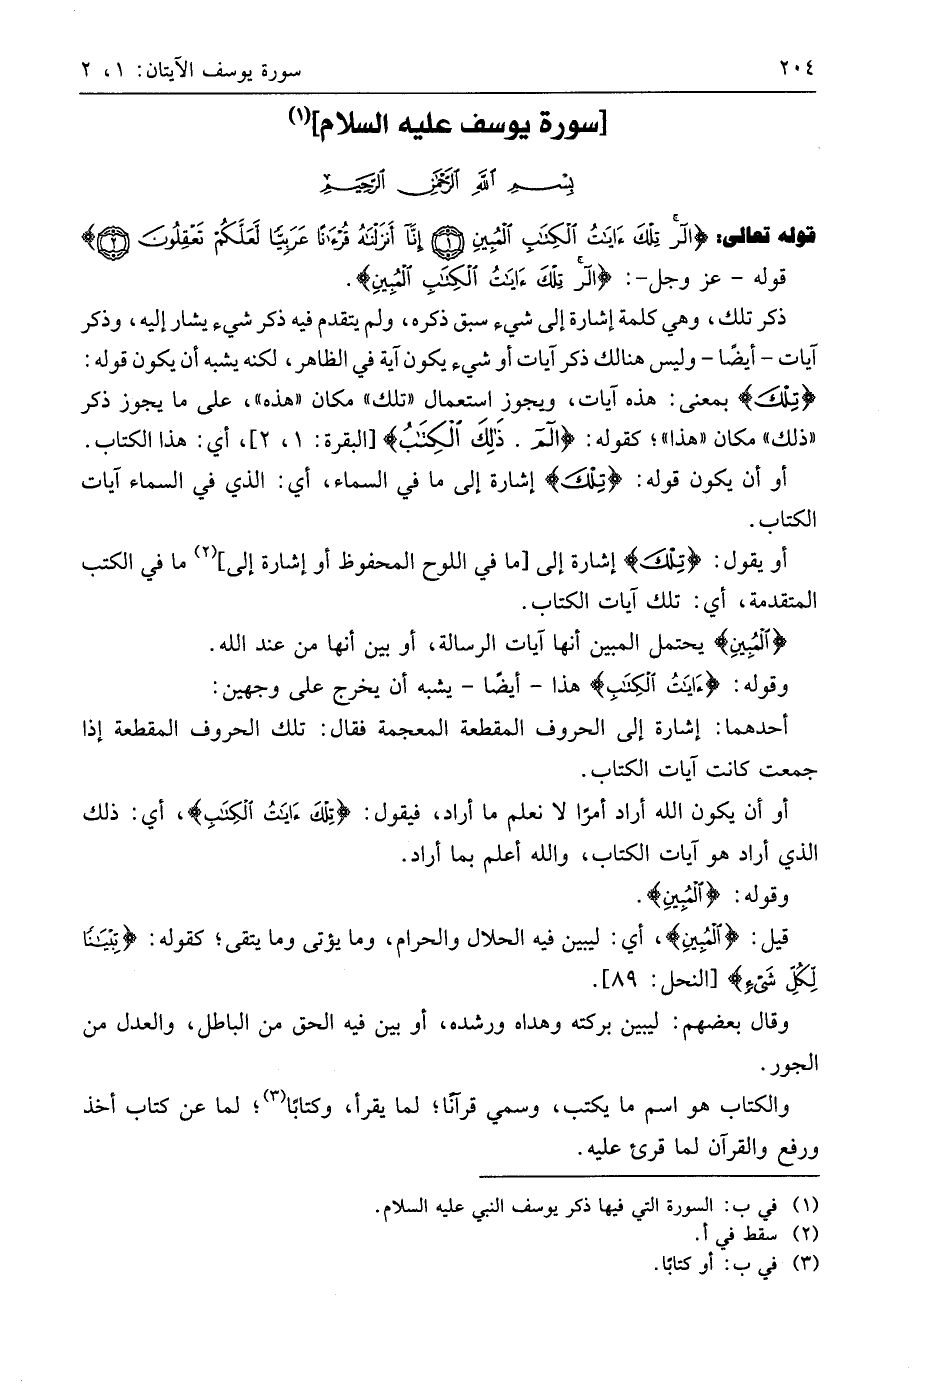 ٢٠٤ سورة يوسف الآيتان: ١، ٢
[سورة يوسف عليه السلام](١)
بِسْمِ اللَّهِ الرَّحْمَٰنِ الرَّحِيمِ
قوله تعالى: ﴿الٓرۚ تِلْكَ ءَايَٰتُ ٱلْكِتَٰبِ ٱلْمُبِينِ ۝١ إِنَّآ أَنزَلْنَٰهُ قُرْءَٰنًا عَرَبِيًّا لَّعَلَّكُمْ تَعْقِلُونَ ۝٢﴾
قوله - عز وجل-: ﴿الٓرۚ تِلْكَ ءَايَٰتُ ٱلْكِتَٰبِ ٱلْمُبِينِ﴾.
ذكر تلك، وهي كلمة إشارة إلى شيء سبق ذكره، ولم يتقدم فيه ذكر شيء يشار إليه، وذكر
آيات - أيضًا - وليس هنالك ذكر آيات أو شيء يكون آية في الظاهر، لكنه يشبه أن يكون قوله:
﴿تِلْكَ﴾ بمعنى: هذه آيات، ويجوز استعمال «تلك» مكان «هذه»، على ما يجوز ذكر
«ذلك» مكان «هذا»؛ كقوله: ﴿الٓمٓ . ذَٰلِكَ ٱلْكِتَٰبُ﴾ [البقرة: ١، ٢]، أي: هذا الكتاب.
أو أن يكون قوله: ﴿تِلْكَ﴾ إشارة إلى ما في السماء، أي: الذي في السماء آيات
الكتاب.
أو يقول: ﴿تِلْكَ﴾ إشارة إلى [ما في اللوح المحفوظ أو إشارة إلى](٢) ما في الكتب
المتقدمة، أي: تلك آيات الكتاب.
﴿ٱلْمُبِينِ﴾ يحتمل المبين أنها آيات الرسالة، أو بين أنها من عند الله.
وقوله: ﴿ءَايَٰتُ ٱلْكِتَٰبِ﴾ هذا - أيضًا - يشبه أن يخرج على وجهين:
أحدهما: إشارة إلى الحروف المقطعة المعجمة فقال: تلك الحروف المقطعة إذا
جمعت كانت آيات الكتاب.
أو أن يكون الله أراد أمرًا لا نعلم ما أراد، فيقول: ﴿تِلْكَ ءَايَٰتُ ٱلْكِتَٰبِ﴾، أي: ذلك
الذي أراد هو آيات الكتاب، والله أعلم بما أراد.
وقوله: ﴿ٱلْمُبِينِ﴾.
قيل: ﴿ٱلْمُبِينِ﴾، أي: ليبين فيه الحلال والحرام، وما يؤتى وما يتقى؛ كقوله: ﴿تِبْيَٰنًا
لِّكُلِّ شَىْءٍ﴾ [النحل: ٨٩].
وقال بعضهم: ليبين بركته وهداه ورشده، أو بين فيه الحق من الباطل، والعدل من
الجور.
والكتاب هو اسم ما يكتب، وسمي قرآنًا؛ لما يقرأ، وكتابًا(٣)؛ لما عن كتاب أخذ
ورفع والقرآن لما قرئ عليه.
(١) في ب: السورة التي فيها ذكر يوسف النبي عليه السلام.
(٢) سقط في أ.
(٣) في ب: أو كتابًا.